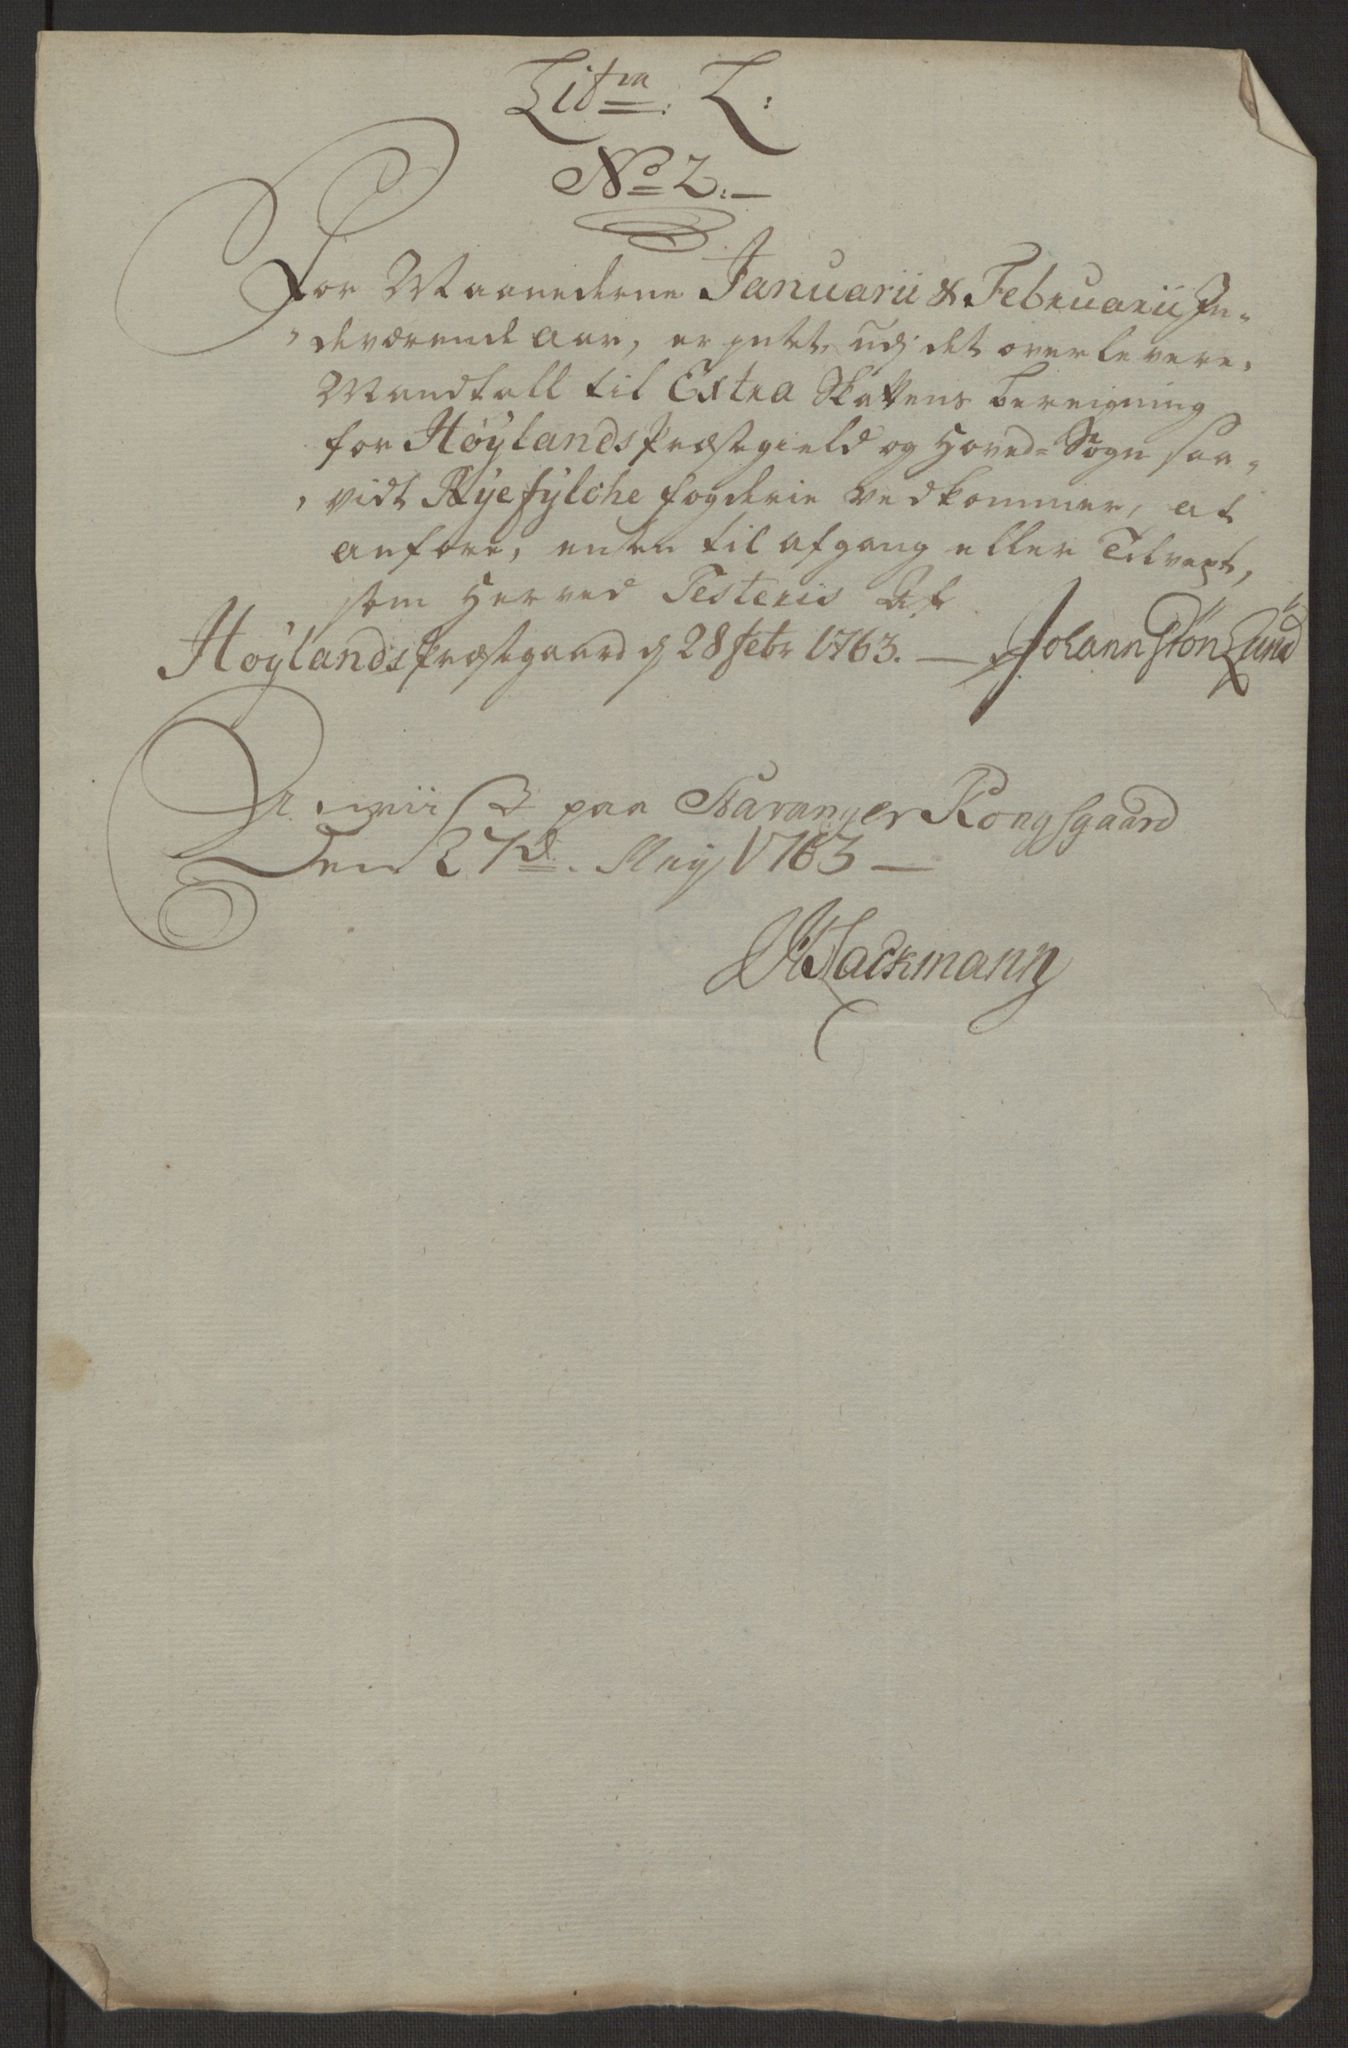 Lit<sup>ra</sup>: L:
No 2:
For Maanederne Januarii & Februarii In-
deværende Aar, er intet udj det overlevere,
Mandtall til Extra Skattens bereigning
for Høylands Præstegield og Hoved-Sogn saa-
vidt Ryefylche fogderie vedkommer, at
anføre, enten til afgang eller Tilvext,
som Herved Testeris Af
Høylands Præstegaard d 28 Febr 1763. — Johann Lund
paa Stavanger Kongsgaard
Den 27d. Maij 1763 —